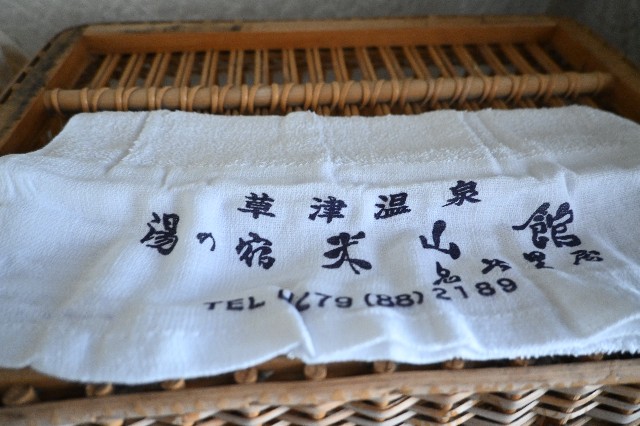 草津温泉
湯の宿 米山館
TEL 0279(88)2189